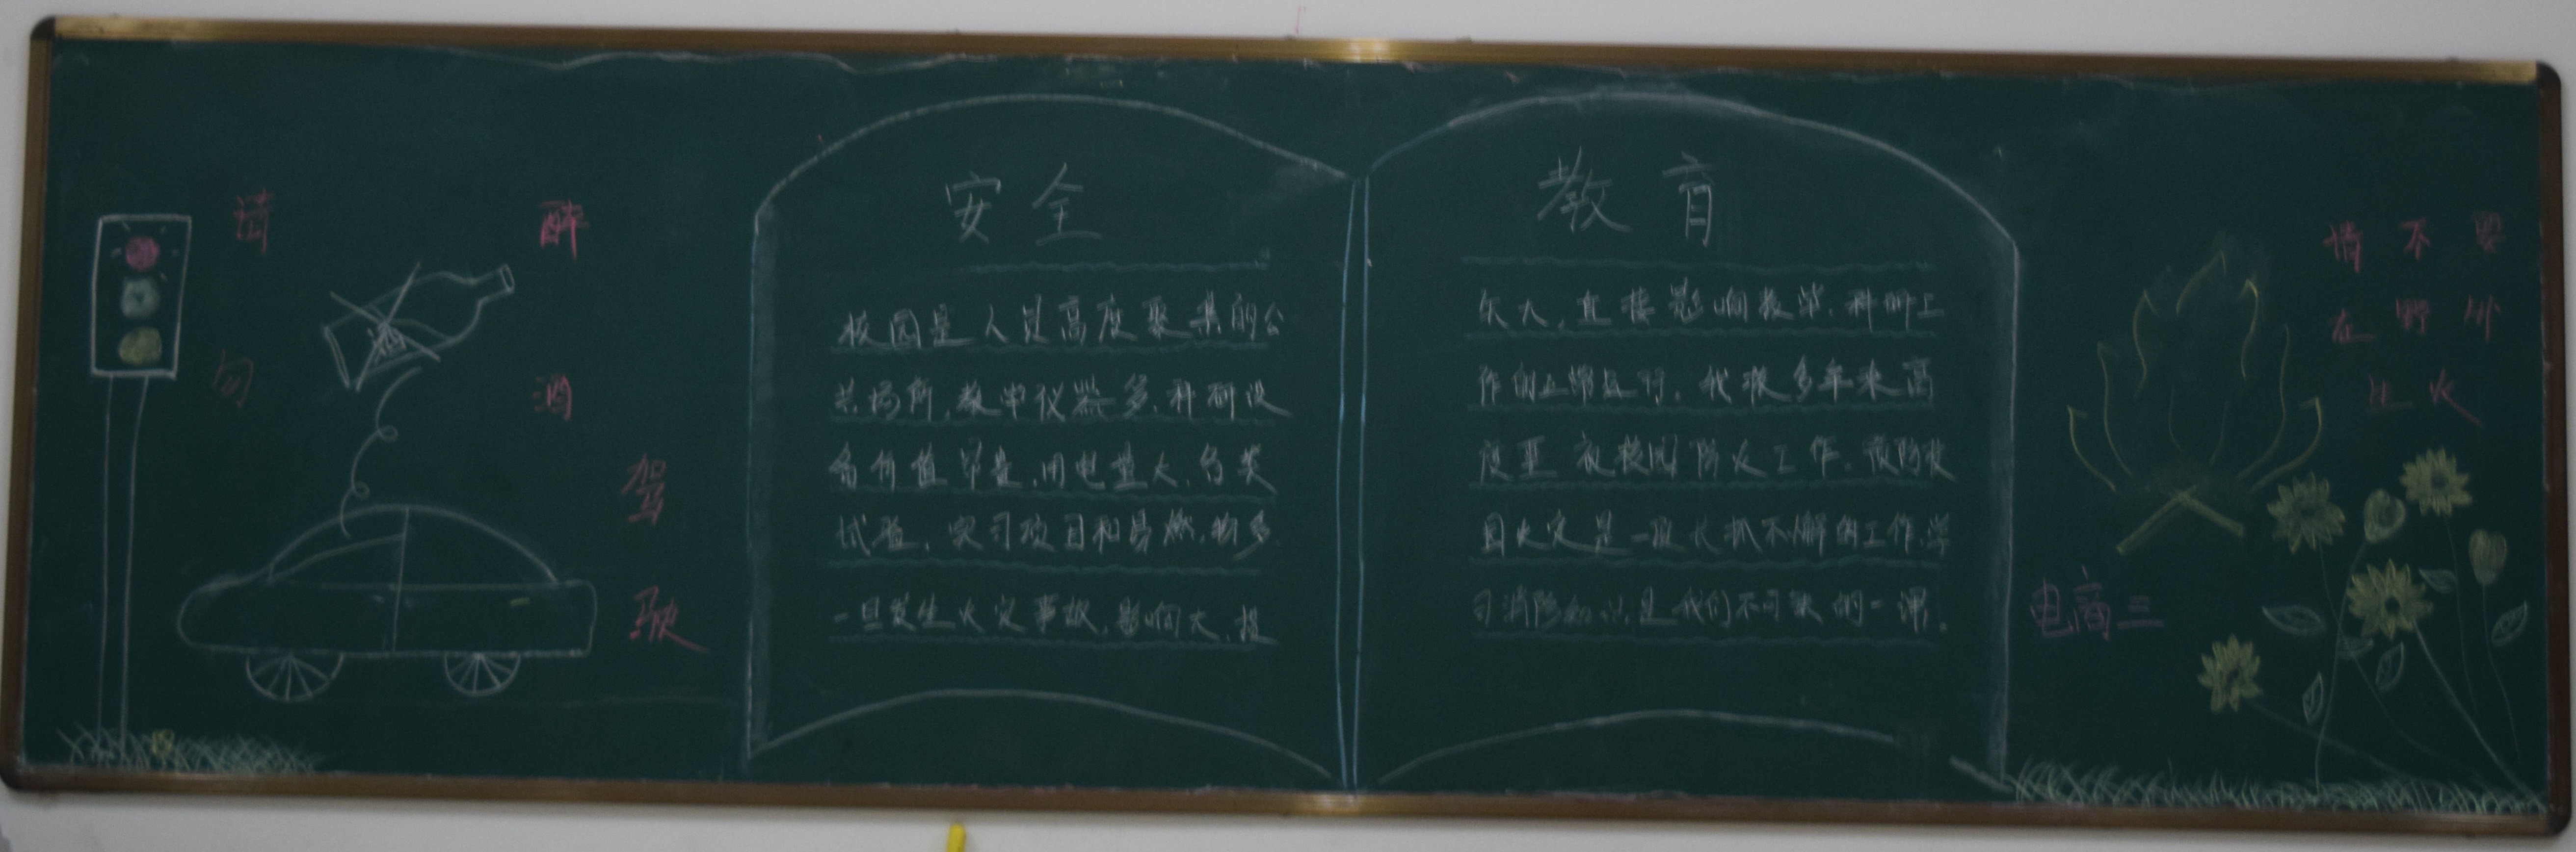 请勿
醉酒
驾驶
酒
安全
校园是人员高度聚集的公
共场所,教学仪器多,科研设
备价值昂贵,用电量大,各类
试验,实习项目和易燃物多
一旦发生火灾事故,影响大,损
教育
失大,直接影响教学.科研工
作的正常运行.我校多年来高
度重视校园防火工作.预防校
园火灾是一项长抓不懈的工作.学
习消防知识是我们不可缺的一课.
情不要
在野外
生火
电商三